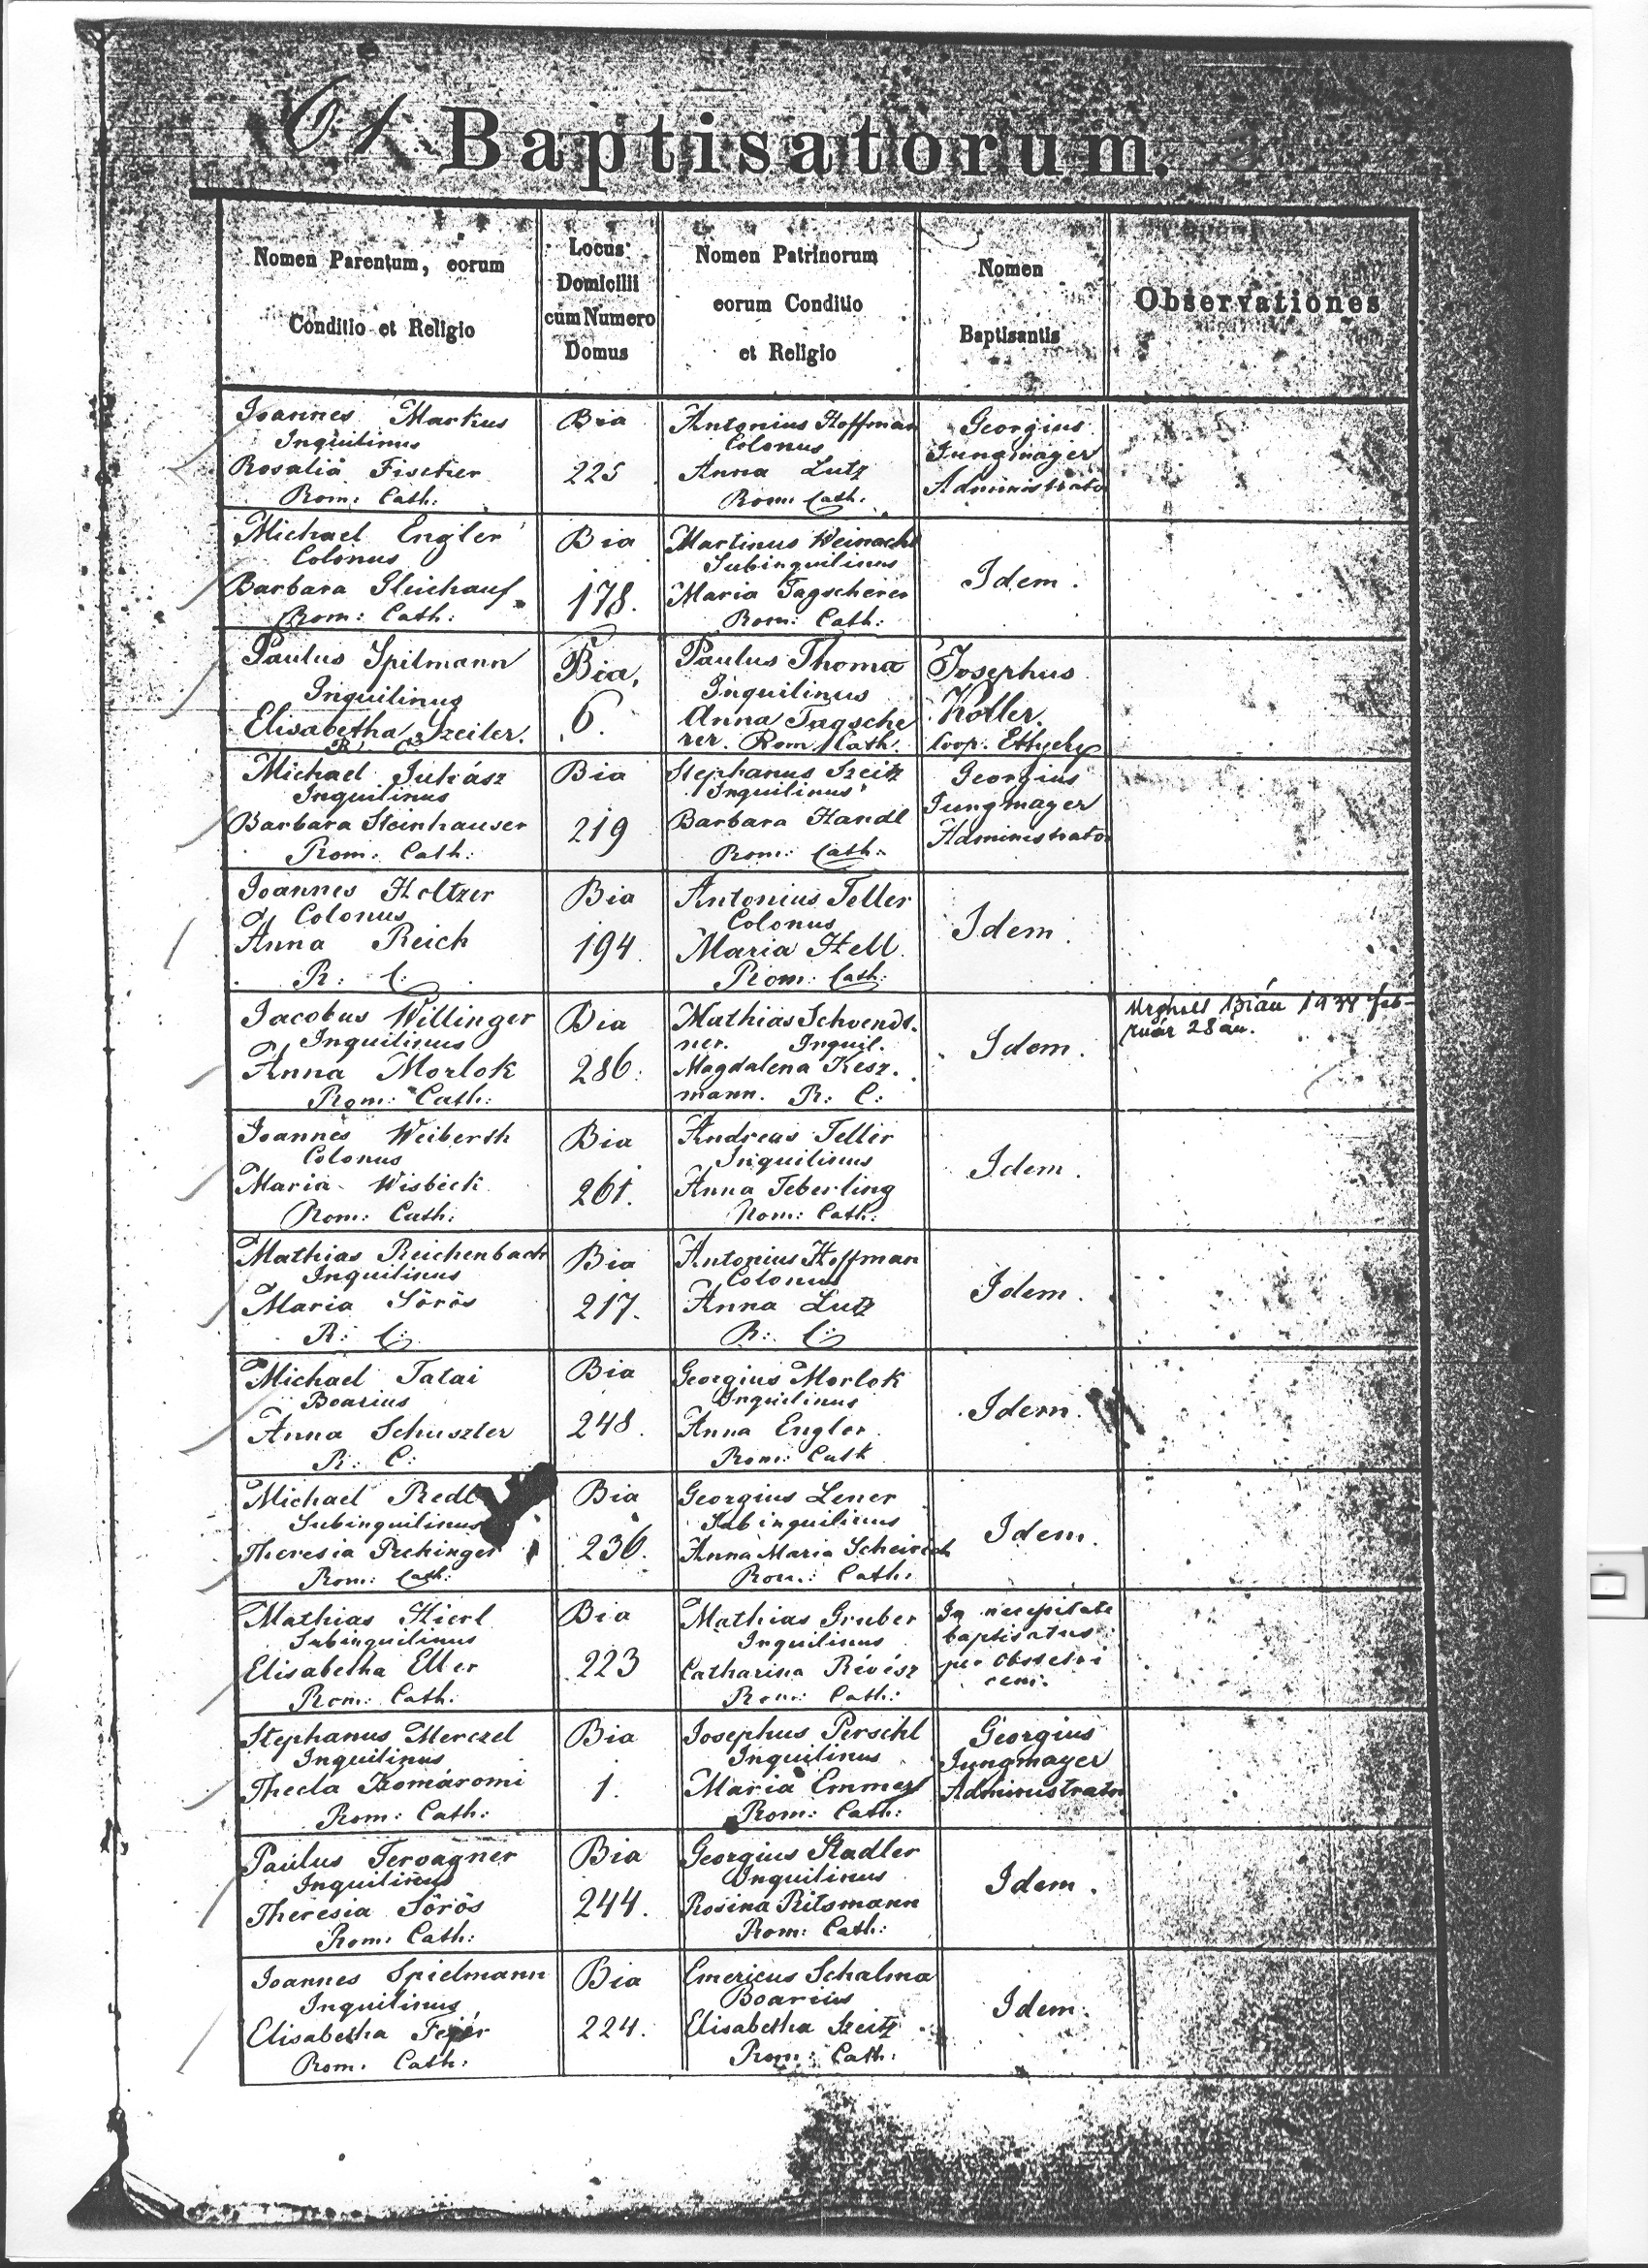 61 Baptisatorum.
Nomen Parentum, eorum
Conditio et Religio
Locus
Domicilii
cum Numero
Domus
Nomen Patrinorum
eorum Conditio
et Religio
Nomen
Baptisantis
Observationes
Joannes Markus
Inquilinus
Rosalia Fischer
Rom: Cath:
Bia
225
Antonius Hoffman
Colonus
Anna Lutz
Rom: Cath.
Georgius
Jungmayer
Administrator
Michael Engler
Colonus
Barbara Gleichauf
Rom: Cath:
Bia
178.
Martinus Weinacht
Subinquilinus
Maria Tagscherer
Rom: Cath:
Idem.
Paulus Spilmann
Inquilinus
Elisabetha Szeiler.
R. C.
Bia,
6.
Paulus Thoma
Inquilinus
Anna Tagsche
rer. Rom. Cath.
Josephus
Koller.
Coop. Ettyek
Michael Juhász
Inquilinus
Barbara Steinhauser
Rom: Cath:
Bia
219
Stephanus Szeitz
Inquilinus
Barbara Handl
Rom: Cath:
Georgius
Jungmayer
Administrator
Joannes Holtzer
Colonus
Anna Reich
R: C:
Bia
194.
Antonius Teller
Colonus
Maria Hell.
Rom: Cath:
Idem.
Jacobus Willinger
Inquilinus
Anna Morlok
Rom: Cath:
Bia
286.
Mathias Schvendt-
ner. Inquil.
Magdalena Kesz-
mann. R: C:
Idem.
Meghalt Bián 1937 feb-
ruár 28án.
Joannes Weiberth
Colonus
Maria Wisbeck
Rom: Cath:
Bia
261.
Andreas Teller
Inquilinus
Anna Teberling
Rom: Cath:
Idem.
Mathias Reichenbach
Inquilinus
Maria Sörös
R: C:
Bia
217.
Antonius Hoffman
Colonus
Anna Lutz
R: C:
Idem.
Michael Tatai
Boarius
Anna Schuszter
R: C:
Bia
248.
Georgius Morlok
Inquilinus
Anna Engler.
Rom: Cath
Idem.
Michael Redl
Subinquilinus
Theresia Prekinger
Rom: Cath:
Bia
236.
Georgius Lener
Subinquilinus
Anna Maria Scheirich
Rom: Cath:
Idem.
Mathias Hierl
Subinquilinus
Elisabetha Eller
Rom: Cath:
Bia
223
Mathias Gruber
Inquilinus
Catharina Révész
Rom: Cath:
In necessitate
baptisatus
per obstetri
cem.
Stephanus Merczel
Inquilinus
Thecla Komáromi
Rom: Cath:
Bia
1.
Josephus Perschl
Inquilinus
Maria Emmer
Rom: Cath:
Georgius
Jungmayer
Administrator
Paulus Fervagner
Inquilinus
Theresia Sörös
Rom: Cath:
Bia
244.
Georgius Stadler
Inquilinus
Rosina Ritsmann
Rom: Cath:
Idem.
Joannes Spielmann
Inquilinus
Elisabetha Fejér
Rom. Cath:
Bia
224.
Emericus Schalma
Boarius
Elisabetha Szeitz
Rom: Cath:
Idem.